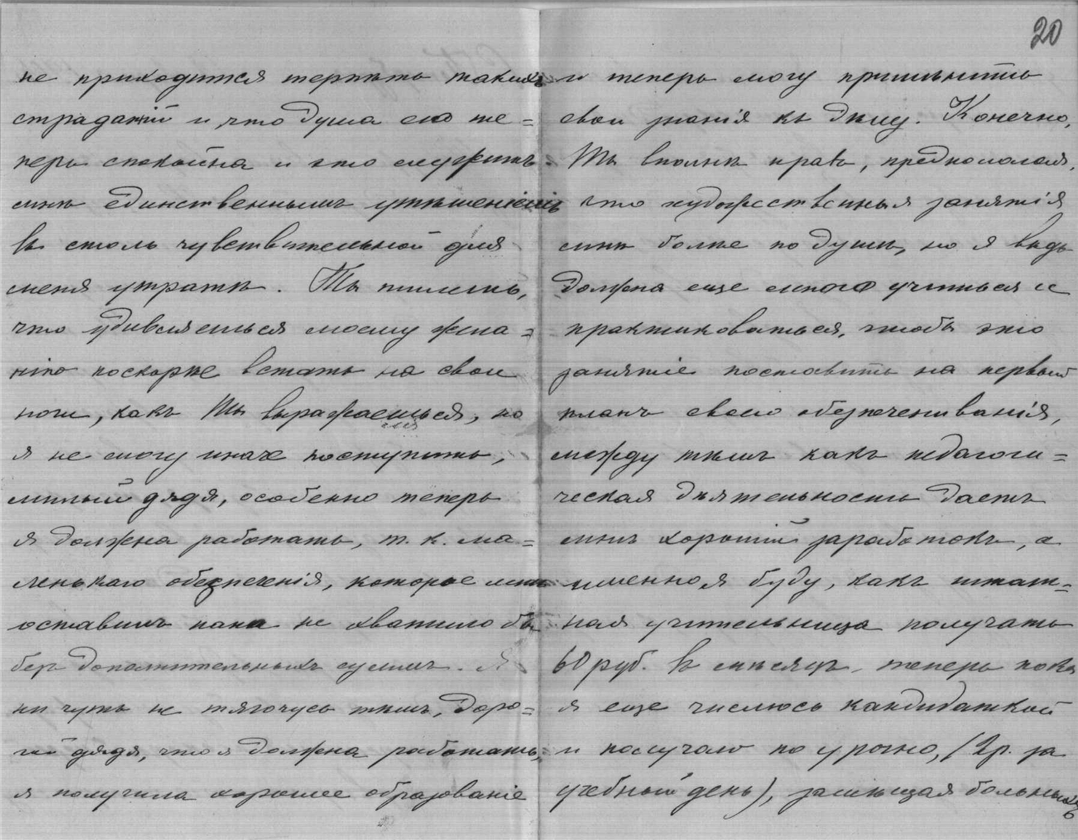 20
не приходится терпѣть такихъ
страданій и что душа его те=
перь спокойна и это служитъ
мнѣ единственнымъ утѣшеніемъ
въ столь чувствительной для
меня утратѣ. Ты пишешь,
что удивляешься моему жела=
нію поскорѣе встать на свои
ноги, какъ Ты выражаешься, но
я не могу иначе поступить,
милый дядя, особенно теперь
я должна работать, т. к. ма=
ленькаго обезпеченія, которое мнѣ
оставилъ папа не хватило бы
безъ дополнительныхъ суммъ. Я
ни чуть не тягочусь тѣмъ, доро=
гой дядя, что я должна работать,
я получила хорошее образованіе
и теперь могу примѣнить
свои знанія къ дѣлу. Конечно,
Ты вполнѣ правъ, предполагая,
что художественныя занятія
мнѣ болѣе по душѣ, но я вѣдь
должна еще много учиться и
практиковаться, чтобы это
занятіе поставить на первый
планъ своего обезпечиванія,
между тѣмъ какъ педагоги=
ческая дѣятельность даетъ
мнѣ хорошій заработокъ, а
именно я буду, какъ штат=
ная учительница получать
60 руб. въ мѣсяцъ, теперь пока
я еще числюсь кандидаткой
и получаю по урочно, (2р. за
учебный день), замѣщая больныхъ